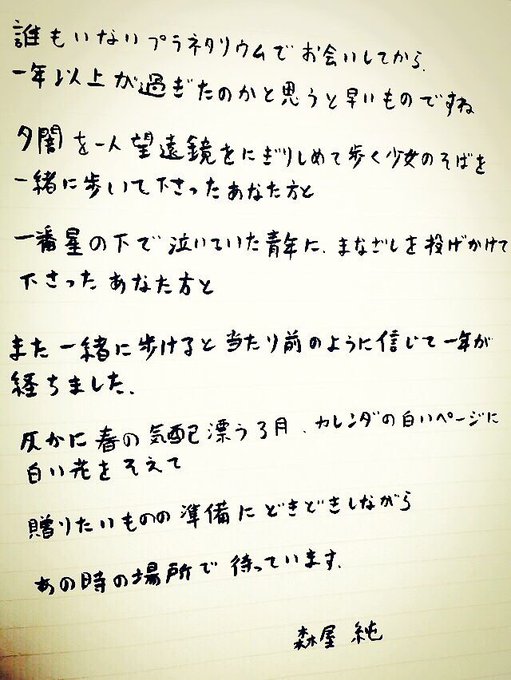 誰もいないプラネタリウムでお会いしてから、
一年以上が過ぎたのかと思うと早いものですね
夕闇を一人望遠鏡をにぎりしめて歩く少女のそばを
一緒に歩いて下さったあなた方と
一番星の下で泣いていた青年に、まなざしを投げかけて
下さったあなた方と
また一緒に歩けると当たり前のように信じて一年が
経ちました、
仄かに春の気配漂う3月、カレンダの白いページに
白い花をそえて
贈りたいものの準備にどきどきしながら
あの時の場所で待っています、
森屋 純